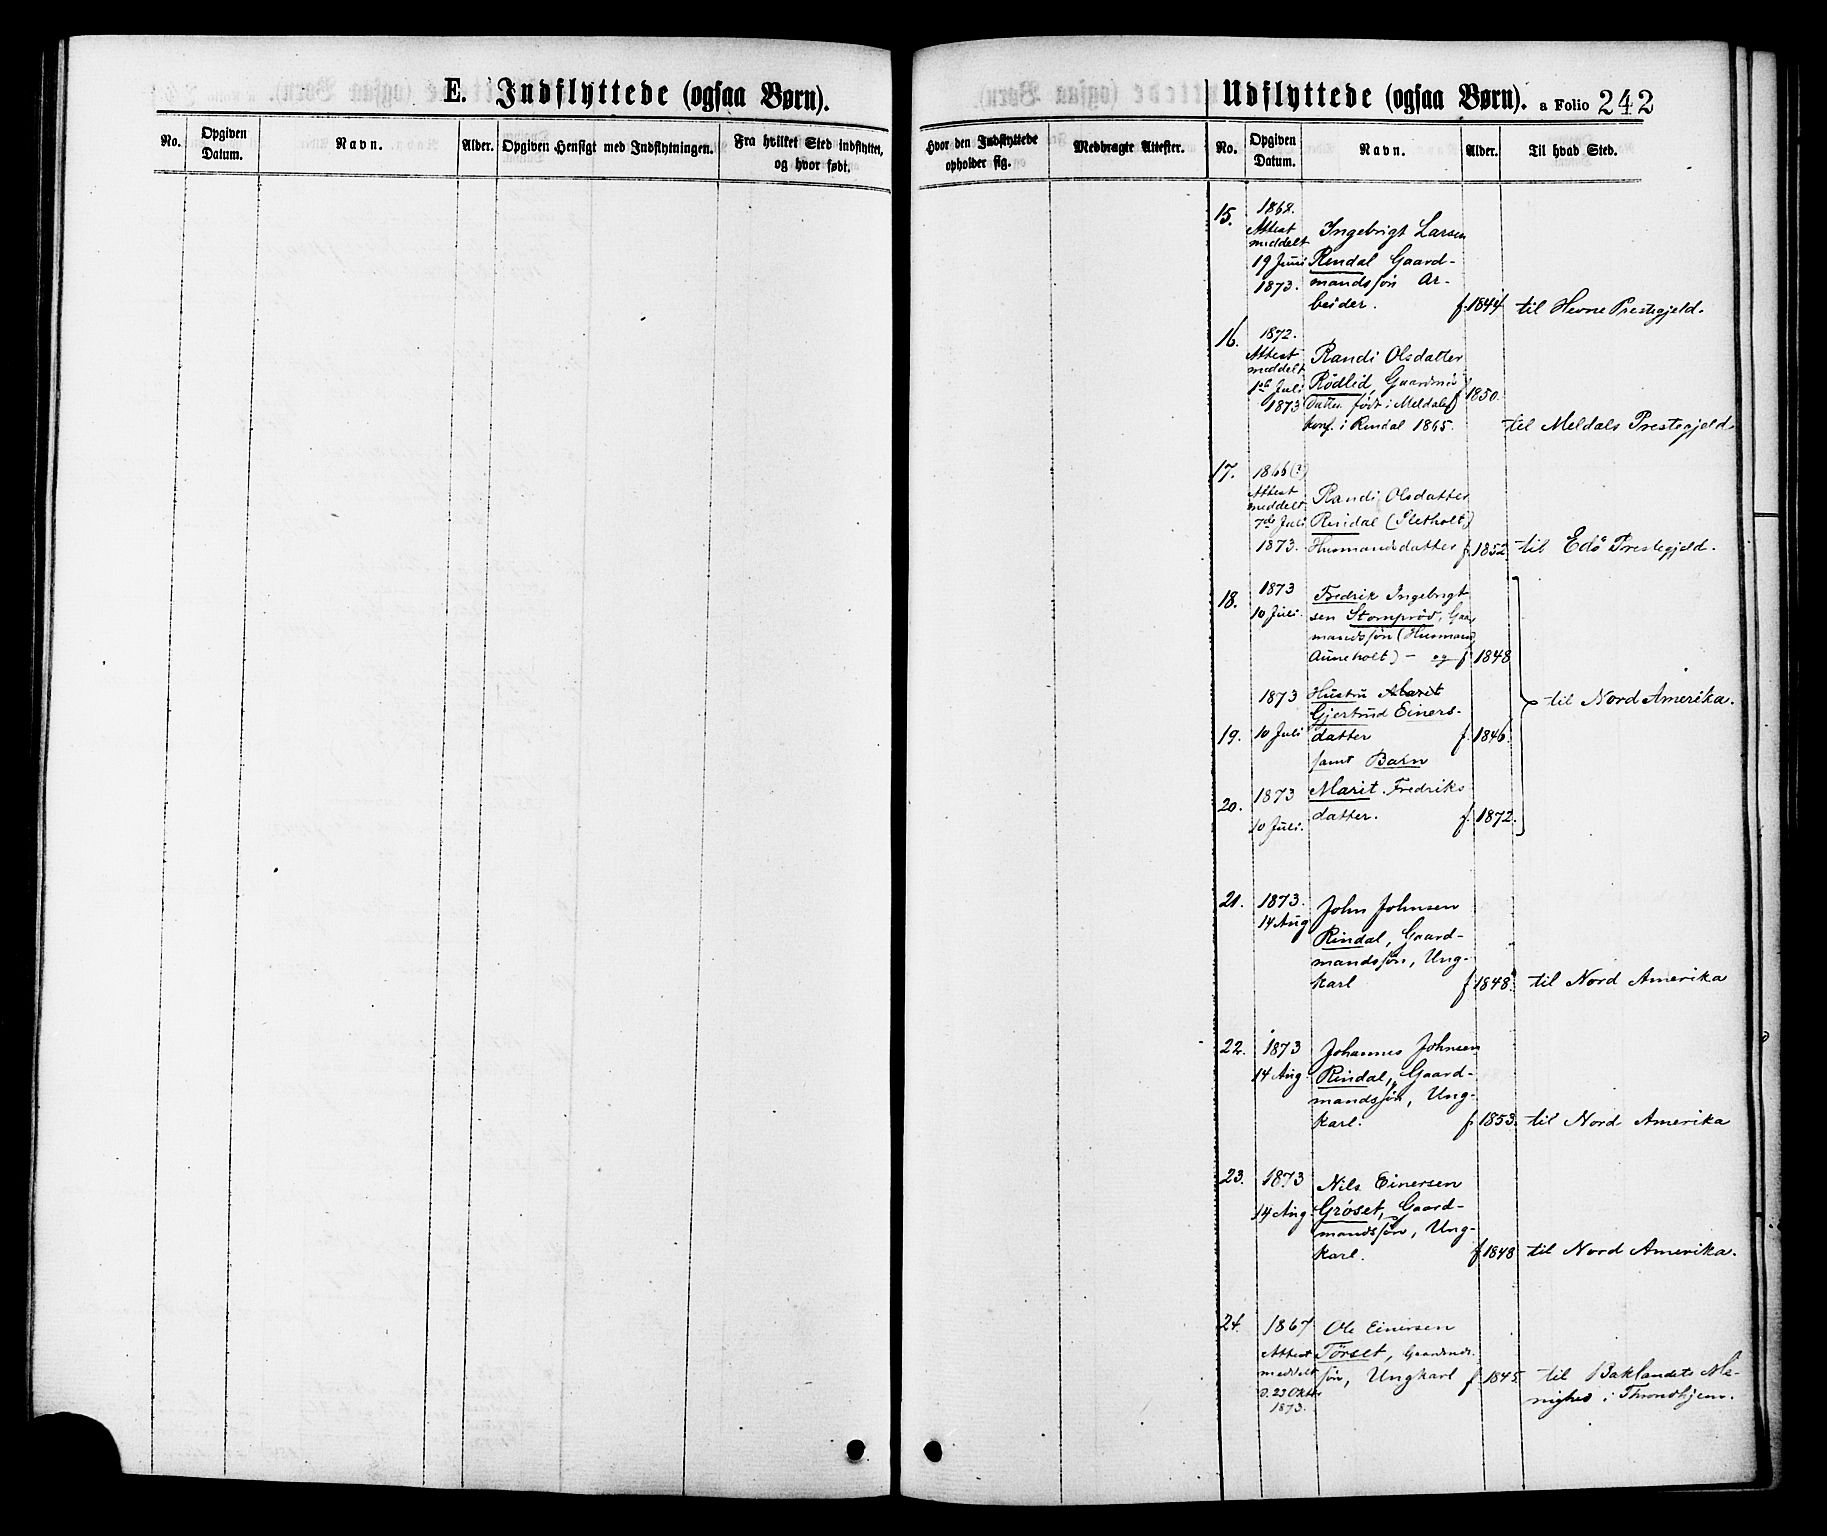 E. Indflyttede (ogsaa Børn).
No.
Opgiven Datum.
Navn.
Alder.
Opgiven Hensigt med Indflytningen.
Fra hvilket Sted indflyttet, og hvor født.
Udflyttede (ogsaa Børn). a Folio 242
Hvor den Indflyttede opholder sig.
Medbragte Attester.
No.
Opgiven Datum.
Navn.
Alder.
Til hvad Sted.
15. 1868.
Attest Ingebrigt Larsen
meddelt
19 Juni Rendal Gaard-
1873. mandssøn Ar-
beider. f. 1844 til Hevne Prestegjeld.
16. 1872.
Attest Randi Olsdatter
meddelt Rødlid, Gaardmds
1ste Juli f 1850.
1873 Datter født i Meldalen
konf. i Rindal 1865. til Meldals Prestegjeld.
17. 1866(?)
Attest Randi Olsdatter
meddelt
7de Juli Rindal (Sletholt)
1873. Husmandsdatter f. 1852. til Edø Prestegjeld.
18. 1873 Fredrik Ingebrigt-
10 Juli. sen Stomprød, Gaa
mandssøn (Husmand
Auneholt) - og f. 1848
1873 Hustru Marit
Gjertrud Einers-
19. 10 Juli datter f. 1846.
samt Barn
til Nord Amerika.
20. 1873 Marit Fredriks
10 Juli. datter. f. 1872.
21. 1873. John Johnsen
14 Aug Rindal, Gaard-
mandssøn, Ung-
karl f 1848. til Nord Amerika
22. 1873 Johannes Johnsen
14 Aug. Rindal, Gaard-
mandssøn, Ung-
karl. f. 1853. til Nord Amerika
23. 1873 Nils Einersen
14 Aug. Grøset, Gaard-
mandssøn, Ung-
karl. f 1848 til Nord Amerika.
24. 1867 Ole Einersen
Attest Tørset, Gaardmds.
meddelt søn, Ungkarl f. 1845. til Baklandets Me-
d. 23 Oktbr nighed i Throndhjem.
1873.